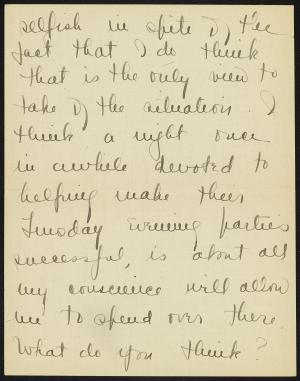 selfish in spite of the
fact that I do think
that is the only view to
take of the situation. I
think a night once
in awhile devoted to
helping make their
Tuesday evening parties
successful, is about all
my conscience will allow
me to spend over there.
What do you think?